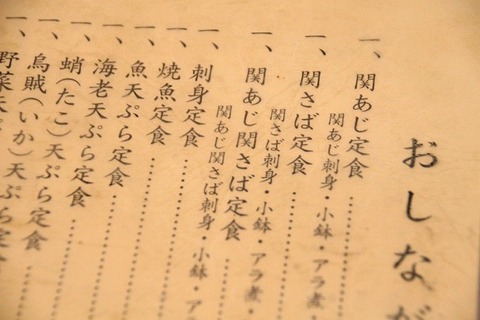 おしなが
一、関あじ定食
関あじ刺身・小鉢・アラ煮・
一、関さば定食
関さば刺身・小鉢・アラ煮・
一、関あじ関さば定食
関あじ関さば刺身・小鉢・ア
一、刺身定食
一、焼魚定食
一、魚天ぷら定食
一、海老天ぷら定食
一、蛸(たこ)天ぷら定食
一、烏賊(いか)天ぷら定食
野菜天ぷら定食